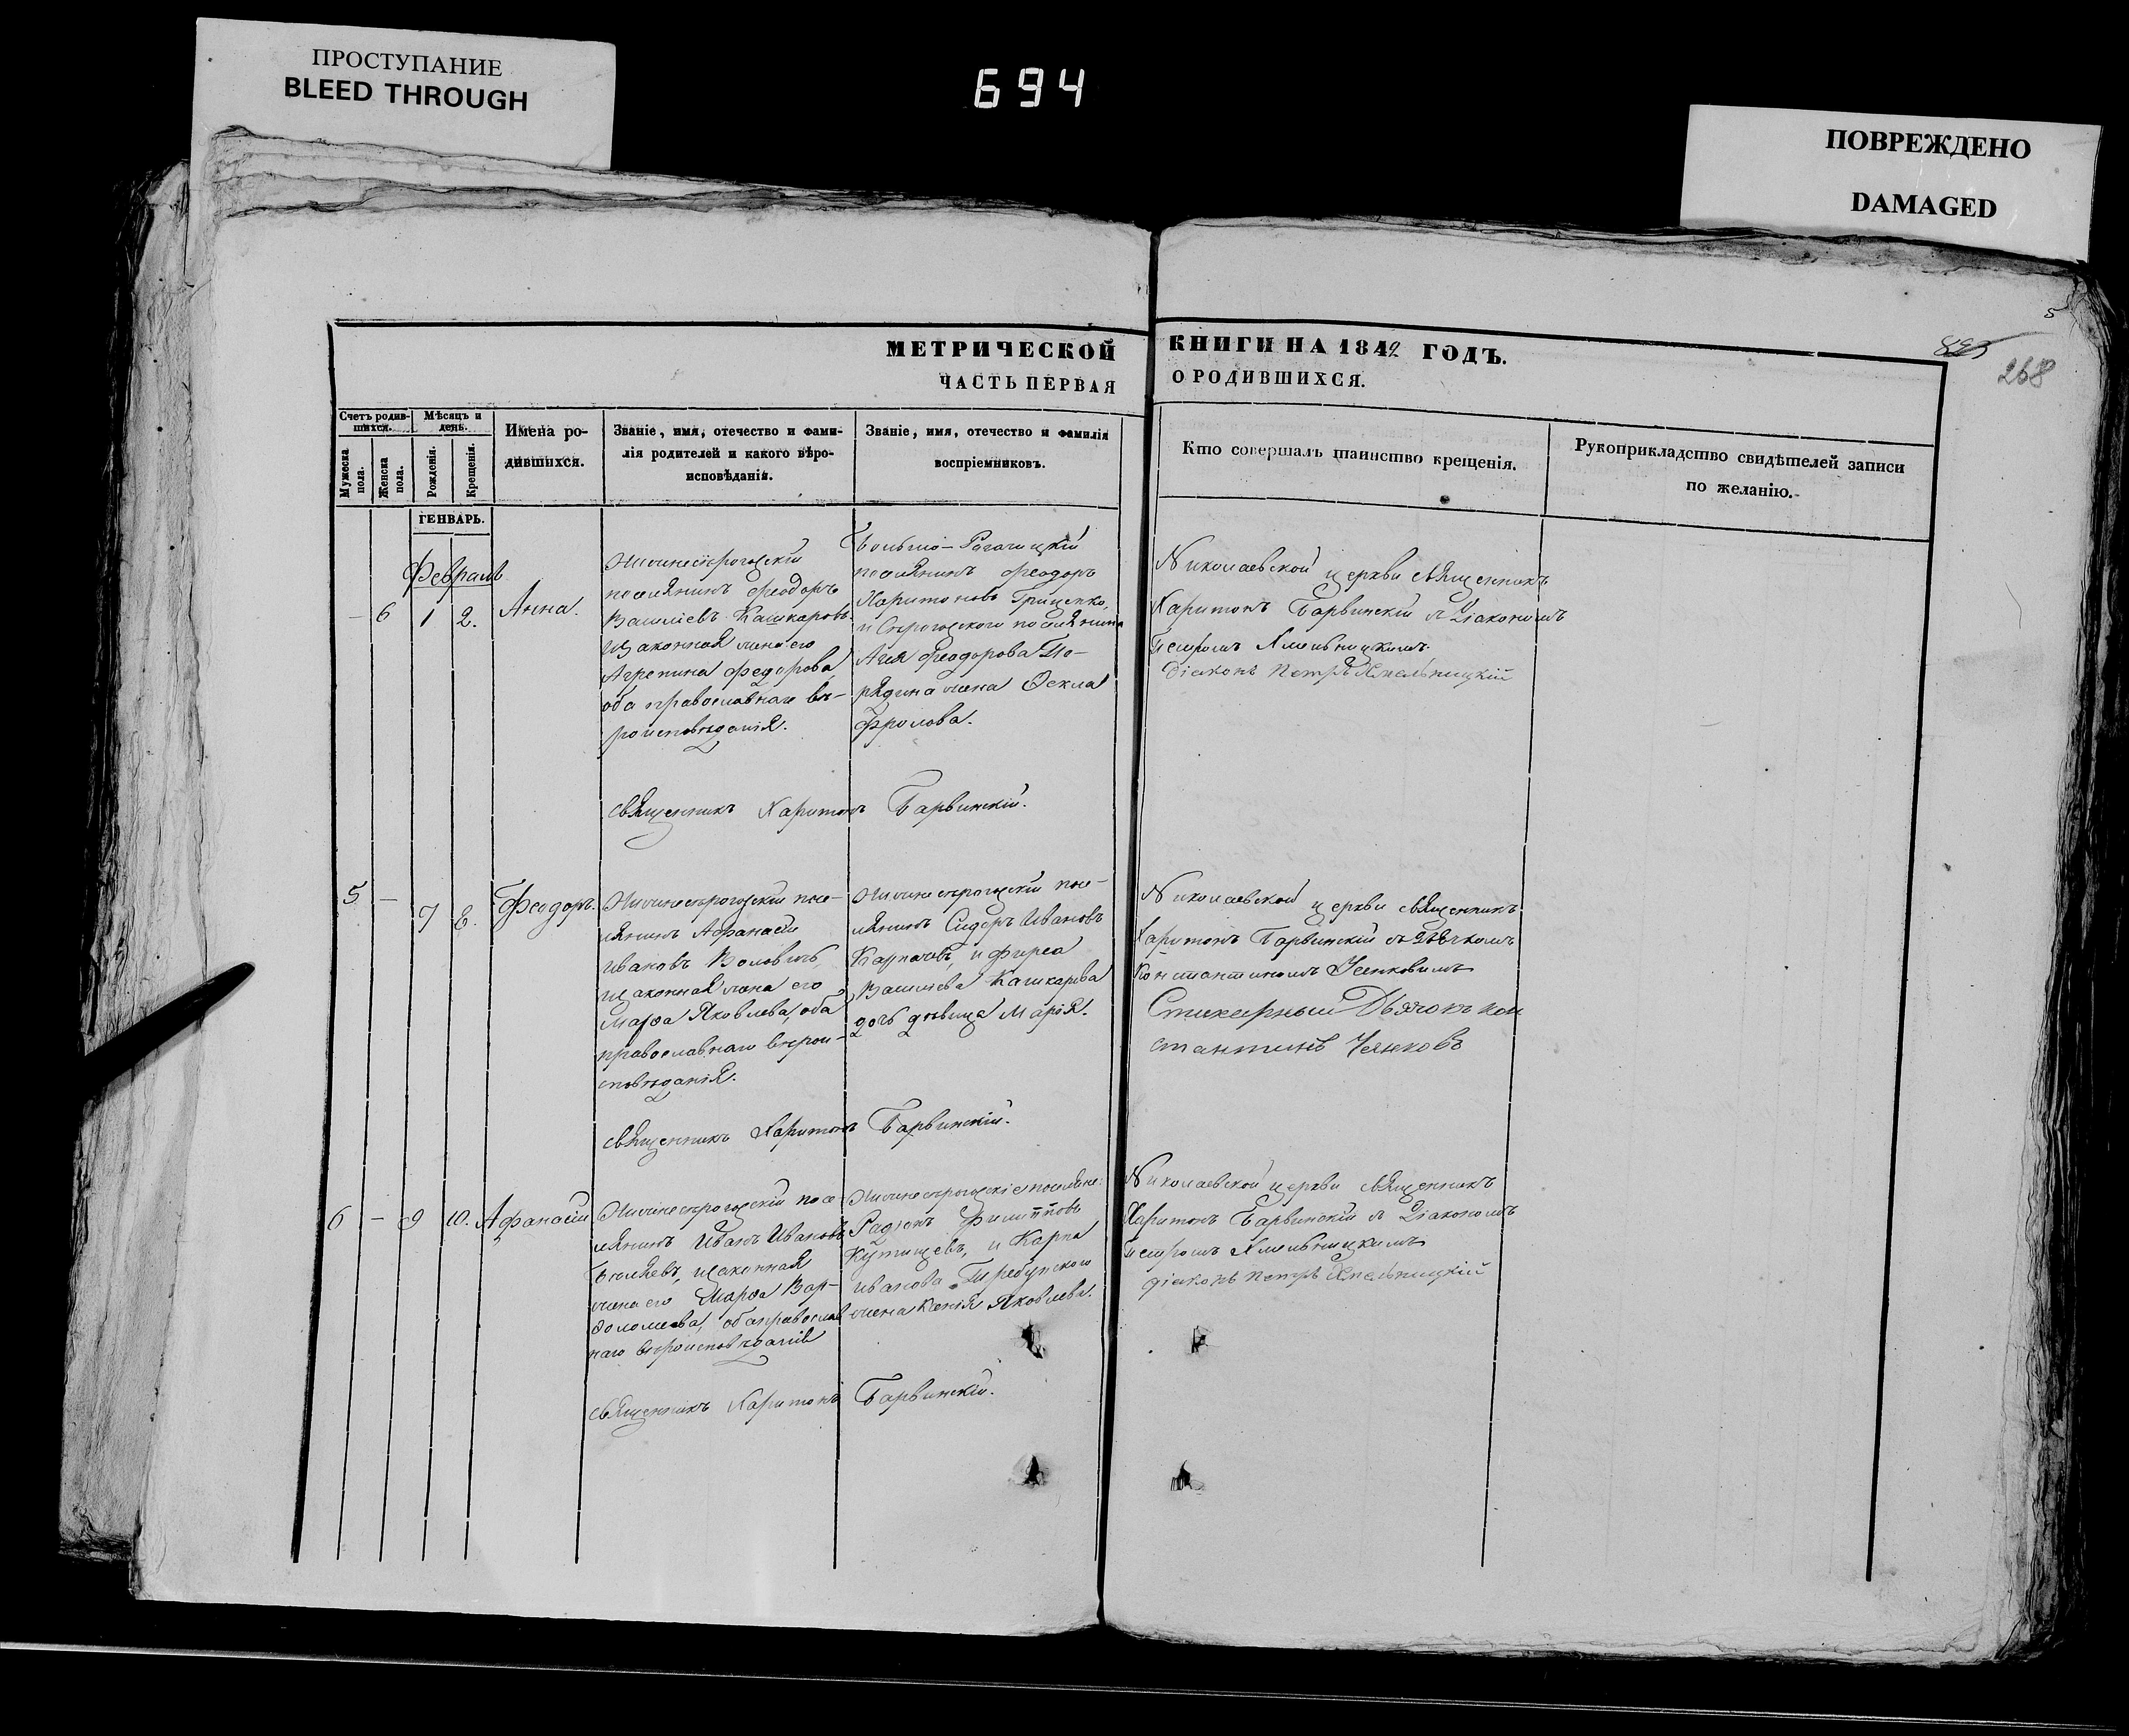 ПРОСТУПАНИЕ
BLEED THROUGH
694
ПОВРЕЖДЕНО
DAMAGED
5
268
МЕТРИЧЕСКОЙ КНИГИ НА 1842 ГОДЪ.
ЧАСТЬ ПЕРВАЯ О РОДИВШИХСЯ.
Счетъ родив-
шихся.
Мужеска пола.
Женска пола.
Мѣсяцъ и
день.
Рожденія.
Крещенія.
Имена ро-
дившихся.
Званіе, имя, отечество и фами-
лія родителей и какого вѣро-
исповѣданія.
Званіе, имя, отечество и фамилія
воспріемниковъ.
Кто совершалъ таинство крещенія.
Рукоприкладство свидѣтелей записи
по желанію.
ГЕНВАРЬ.
Февраль
— 6 1 2. Анна.
Нижнесѣрогозскій
поселянинъ Феодоръ
Васильевъ Кашкаровъ
и законная жена его
Агрепина Федорова,
оба православнаго вѣ-
роисповѣданія.
Больше-Рогачицкій
поселянинъ Феодоръ
Харитоновъ Гриценко,
и Сѣрогозскаго поселянина
Феодорова По-
рядина жена Ѳекла
Фролова.
Николаевской церкви священникъ
Харитонъ Барвинскій съ Діакономъ
Петромъ Хмельницкимъ.
Діаконъ Петръ Хмельницкій
священникъ Харитонъ Барвинскій.
5 — 7 8. Феодоръ.
Нижнесѣрогозскій посе-
лянинъ Афанасій
Ивановъ
и законная жена его
Марфа Яковлева, оба
православнаго вѣрои-
сповѣданія.
Нижнесѣрогозскій посе-
лянинъ Сидоръ Ивановъ
и Фирса
Васильева Кашкарева
дочь дѣвица Марія.
Николаевской церкви священникъ
Харитонъ Барвинскій съ дьячкомъ
Константиномъ
Стихарный Дьячокъ Кон
стантинъ
священникъ Харитонъ Барвинскій.
6 — 9 10. Афанасій
Нижнесѣрогозскій посе-
лянинъ Иванъ Ивановъ
Бѣляевъ, и законная
жена его Марфа Вар-
ѳоломеева, оба православ
наго вѣроисповѣданія
Нижнесѣрогозскіе поселяне:
Радіонъ Филипповъ
и Карпа
Иванова
жена Ксенія Яковлева.
Николаевской церкви священникъ
Харитонъ Барвинскій съ Діакономъ
Петромъ Хмельницкимъ
Діаконъ Петръ Хмельницкій
священникъ Харитонъ Барвинскій.